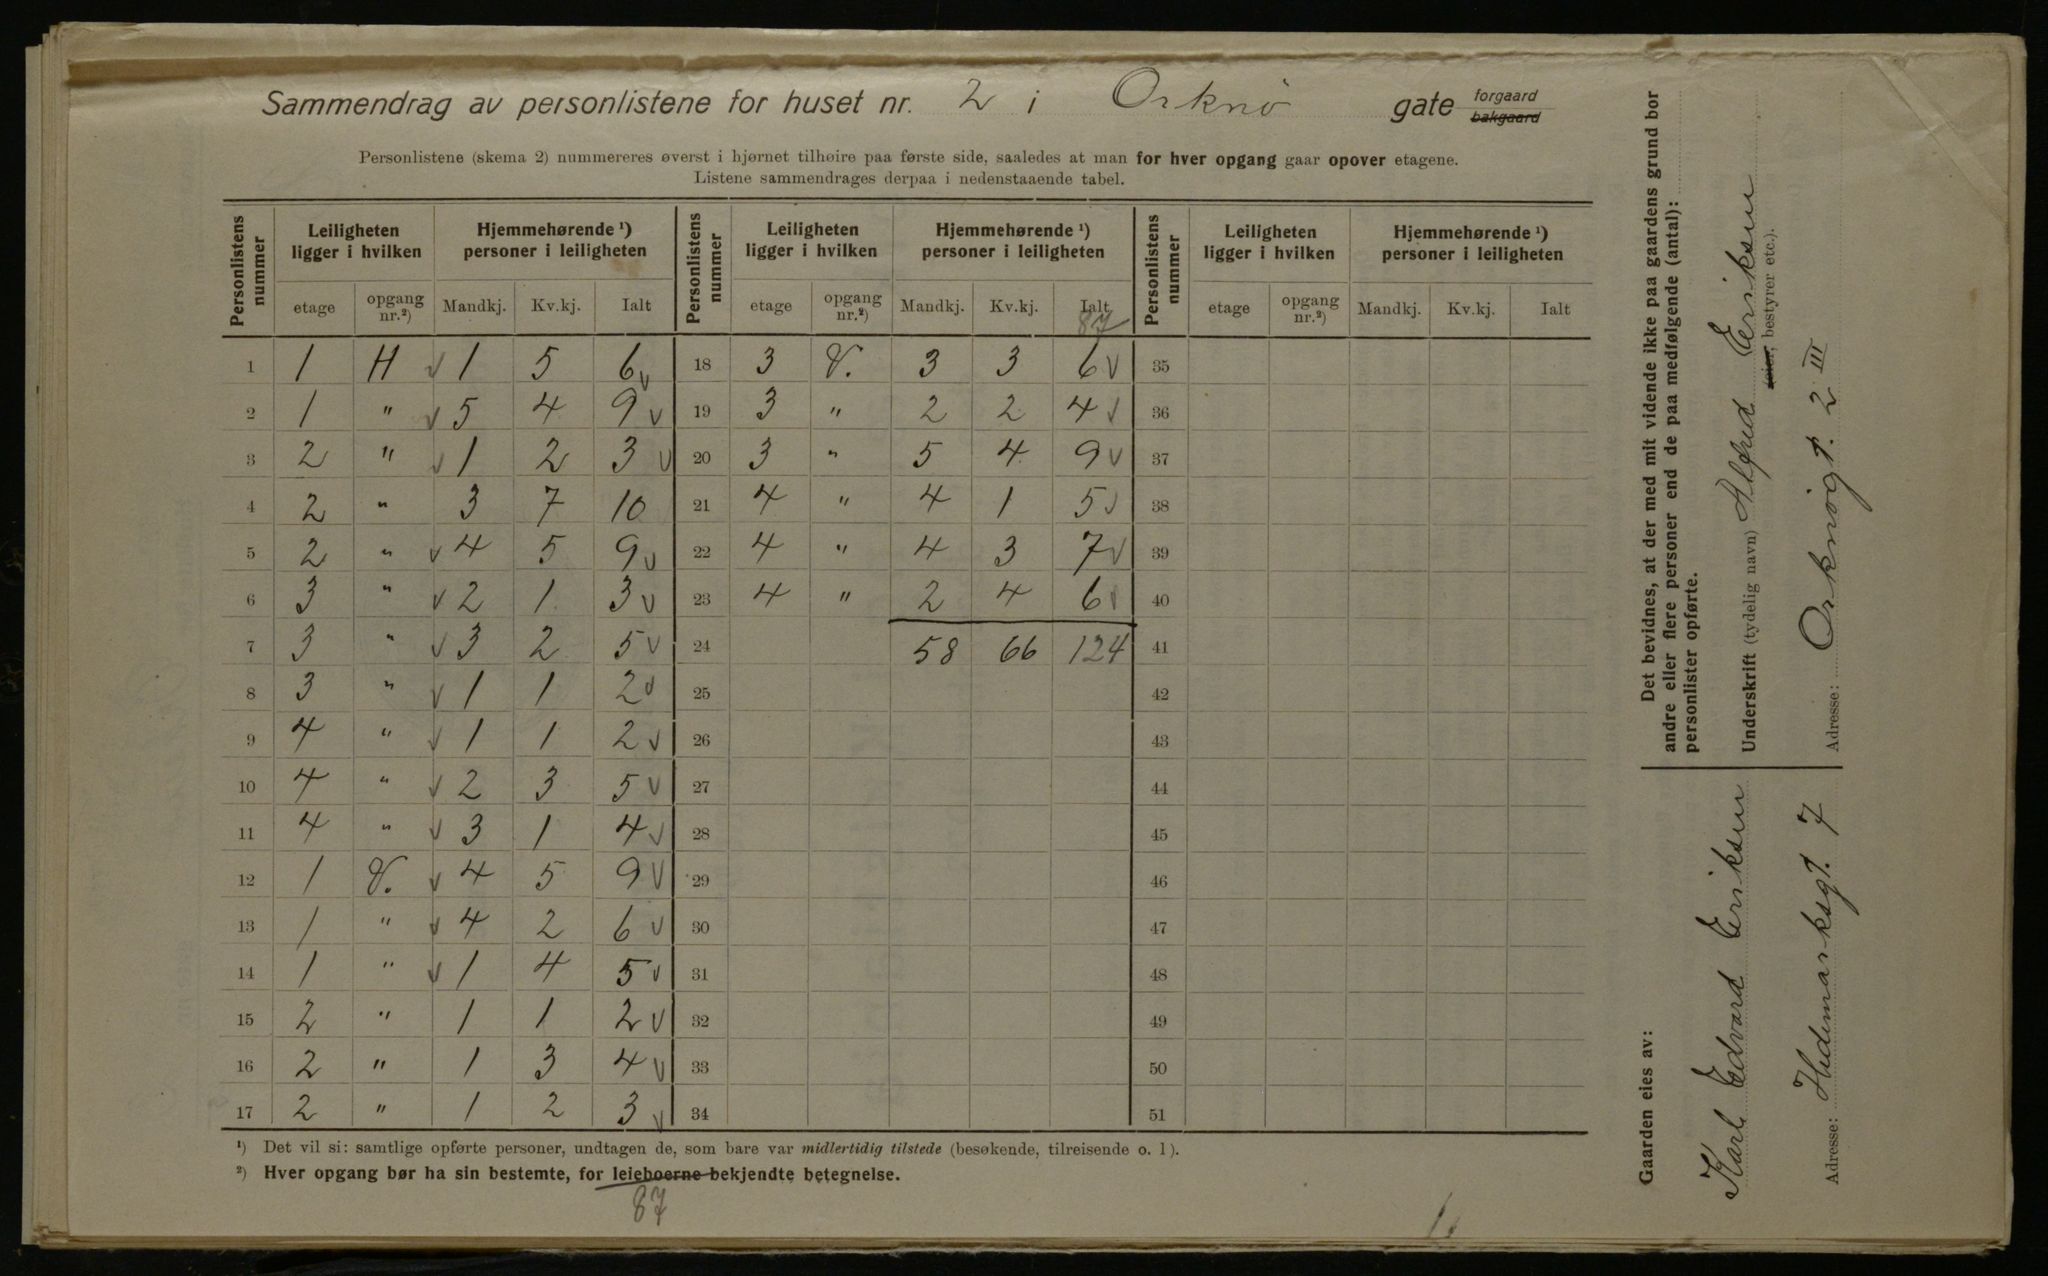 Sammendrag av personlistene for huset nr. 2 i Orknö gate forgaard bakgaard
Personlistene (skema 2) nummereres øverst i hjørnet tilhøire paa første side, saaledes at man for hver opgang gaar opover etagene.
Listene sammendrages derpaa i nedenstaaende tabel.
Personlistens nummer | Leiligheten ligger i hvilken | Hjemmehørende ¹) personer i leiligheten | Personlistens nummer | Leiligheten ligger i hvilken | Hjemmehørende ¹) personer i leiligheten | Personlistens nummer | Leiligheten ligger i hvilken | Hjemmehørende ¹) personer i leiligheten
etage | opgang nr.²) | Mandkj. | Kv.kj. | Ialt | etage | opgang nr.²) | Mandkj. | Kv.kj. | Ialt | etage | opgang nr.²) | Mandkj. | Kv.kj. | Ialt
87
1 | 1 | H | 1 | 5 | 6 | 18 | 3 | V. | 3 | 3 | 6 | 35
2 | 1 | " | 5 | 4 | 9 | 19 | 3 | " | 2 | 2 | 4 | 36
3 | 2 | " | 1 | 2 | 3 | 20 | 3 | " | 5 | 4 | 9 | 37
4 | 2 | " | 3 | 7 | 10 | 21 | 4 | " | 4 | 1 | 5 | 38
5 | 2 | " | 4 | 5 | 9 | 22 | 4 | " | 4 | 3 | 7 | 39
6 | 3 | " | 2 | 1 | 3 | 23 | 4 | " | 2 | 4 | 6 | 40
7 | 3 | " | 3 | 2 | 5 | 24 | 58 | 66 | 124 | 41
8 | 3 | " | 1 | 1 | 2 | 25 | 42
9 | 4 | " | 1 | 1 | 2 | 26 | 43
10 | 4 | " | 2 | 3 | 5 | 27 | 44
11 | 4 | " | 3 | 1 | 4 | 28 | 45
12 | 1 | V. | 4 | 5 | 9 | 29 | 46
13 | 1 | " | 4 | 2 | 6 | 30 | 47
14 | 1 | " | 1 | 4 | 5 | 31 | 48
15 | 2 | " | 1 | 1 | 2 | 32 | 49
16 | 2 | " | 1 | 3 | 4 | 33 | 50
17 | 2 | " | 1 | 2 | 3 | 34 | 51
¹) Det vil si: samtlige opførte personer, undtagen de, som bare var midlertidig tilstede (besøkende, tilreisende o. l).
²) Hver opgang bør ha sin bestemte, for leieboerne bekjendte betegnelse.
87
Det bevidnes, at der med mit vidende ikke paa gaardens grund bor
andre eller flere personer end de paa medfølgende (antal):
personlister opførte.
Underskrift (tydelig navn) Alfred Eriksen
(eier, bestyrer etc.).
Adresse: Orknögt. 2 III
Gaarden eies av:
Karl Edvard Eriksen
Adresse: Hedemarksgt. 7